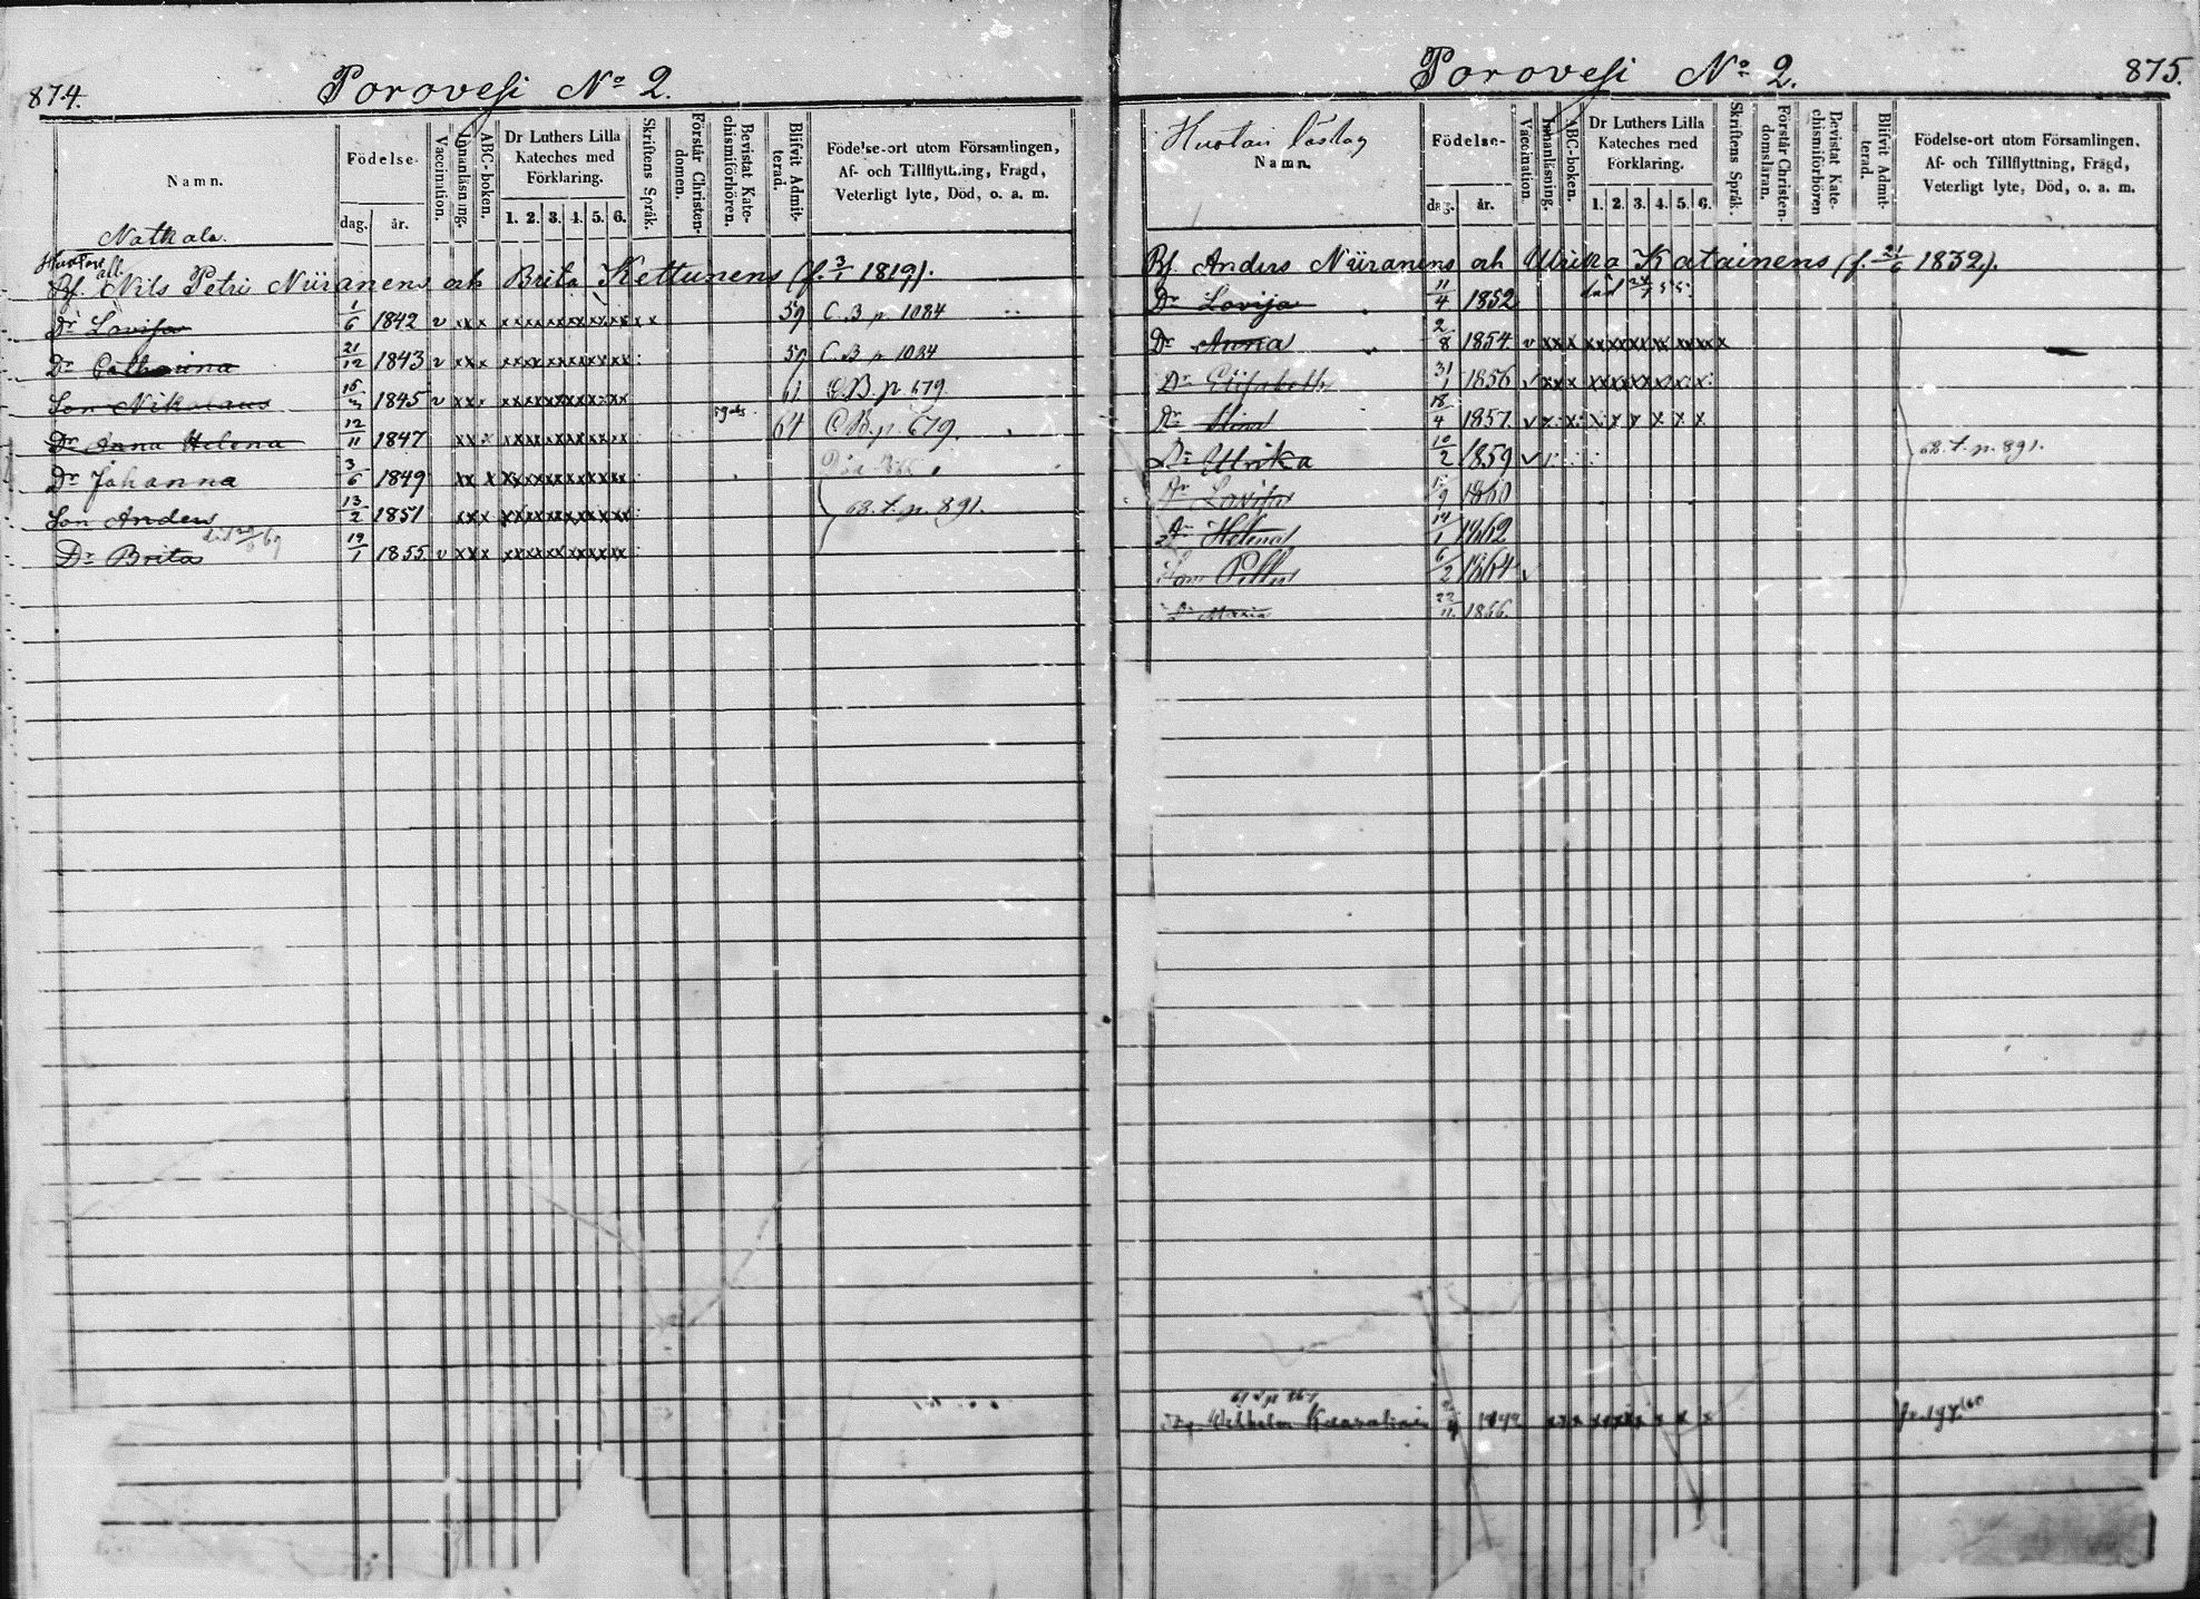 874.
Porovesi No 2.
Namn.
Natkala.
Födelse-
dag. år.
Vaccination.
Innanläsning.
ABC-boken.
Dr Luthers Lilla
Kateches med
Förklaring.
1. 2. 3. 4. 5. 6.
Skriftens Språk.
Förstår Christen-
domen.
Bevistat Kate-
chismiförhören.
Blifvit Admit-
terad.
Födelse-ort utom Församlingen,
Af- och Tillflyttning, Frägd,
Veterligt lyte, Död, o. a. m.
Bf. Nils Petri Niiranens och Brita Kettunens (f. 3/1 1819).
Dr Lovisa 1/6 1842 v xx x xxxxxxxxxxxx x x 59 C.B p 1084
Dr Catharina 21/12 1843 v xx x xxxxxxxxxxxx 59 C B p 1084
Son Nikolaus 1845 v xx x xxxxxxxxxxxx 61 C.B. p. 679.
Dr Anna Helena 12/11 1847 xx x xxxxxxxxxxxx 64 C.B. p. 679.
Dr Johanna 3/6 1849 xx x xxxxxxxxxxxx
Son Anders 13/2 1851 xx x xxxxxxxxxxxx 68. f. p. 891.
Dr Brita 19/1 1855 v xx x xxxxxxxxxxxx
Porovesi No 2.
875.
Namn.
Födelse-
dag. år.
Vaccination.
Innanläsning.
ABC-boken.
Dr Luthers Lilla
Kateches med
Förklaring.
1. 2. 3. 4. 5. 6.
Skriftens Språk.
Förstår Christen-
domsläran.
Bevistat Kate-
chismiförhören
Blifvit Admit-
terad.
Födelse-ort utom Församlingen,
Af- och Tillflyttning, Frägd,
Veterligt lyte, Död, o. a. m.
Bf. Anders Niiranens och Ulrika Katainens (f. 21/6 1832).
Dr Lovisa 11/4 1852 död
Dr Anna 2/8 1854 v xx x xxxxxxxxxxxx x
Dr Elisabeth 31/1 1856 v xx x xxxxxxxxxx
Dr Stina 18/4 1857 v x x x x x x x x
Dr Ulrika 10/2 1859 v 68. f. p. 891.
Dr Lovisa 1860
Dr Helena 14/1 1862
Son Petter 6/2 1864 v
Dr Maria 22/11 1866.
Wilhelm